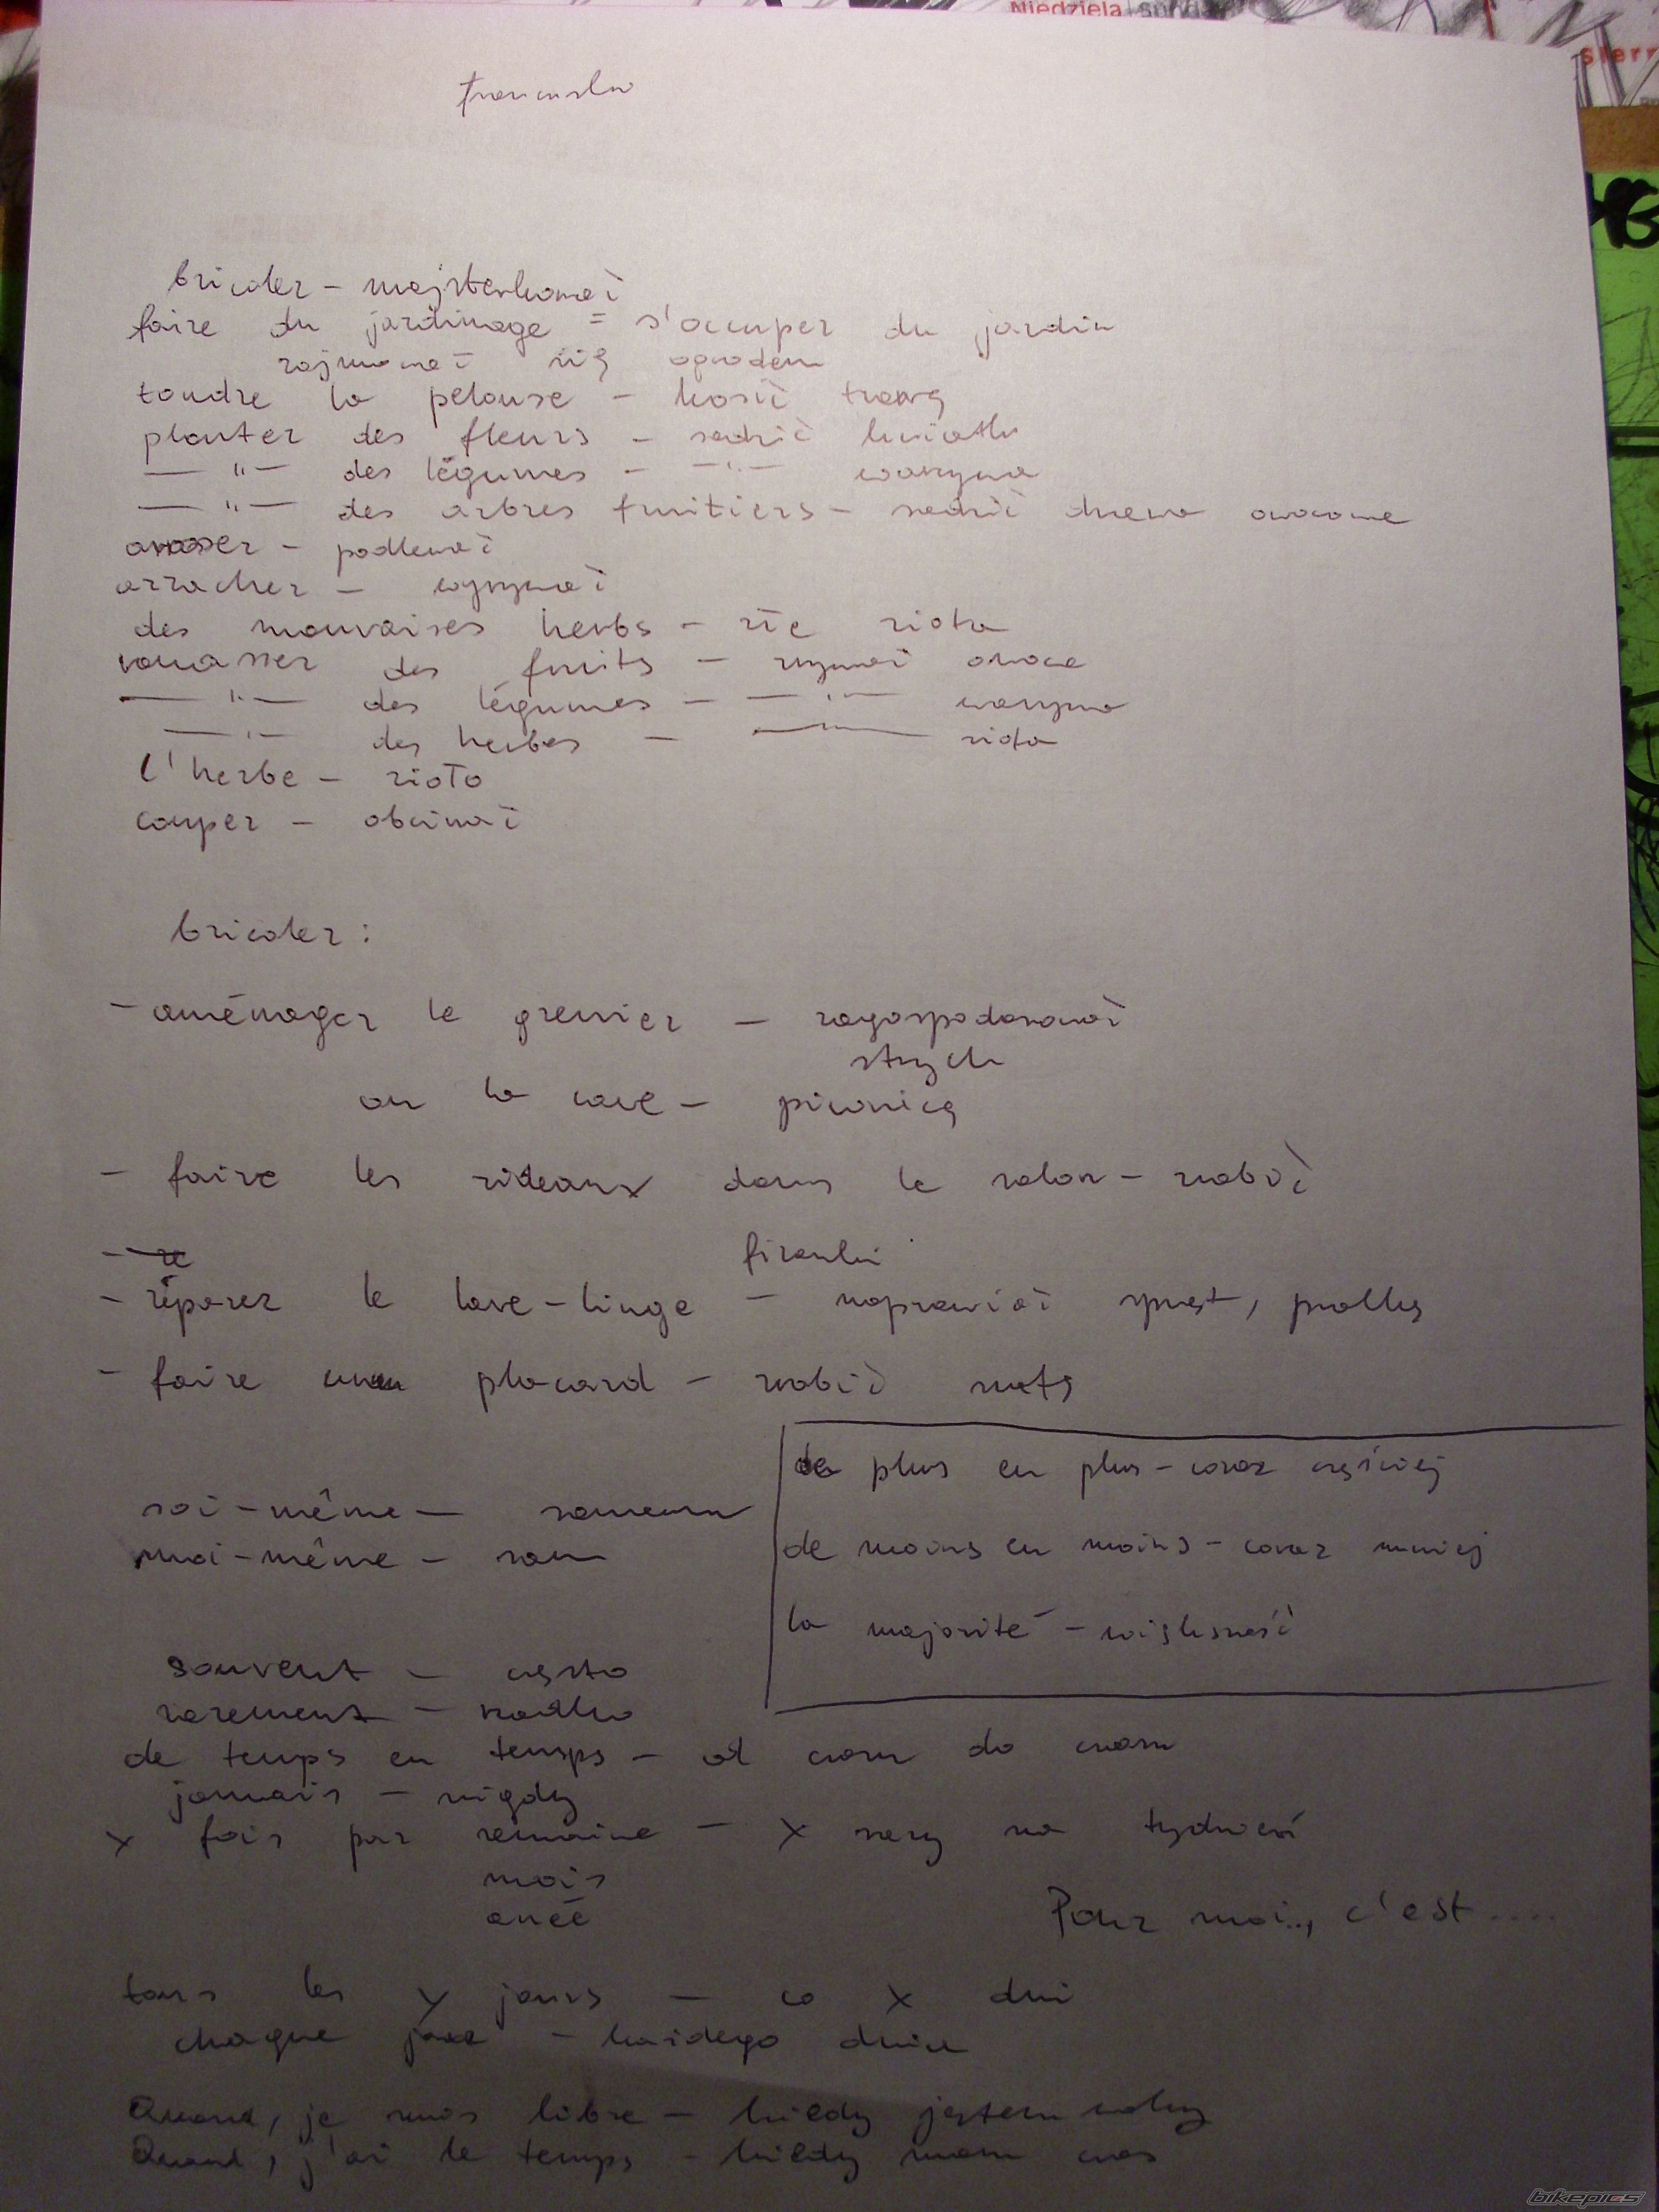 Niedziela Sunda
francuski
bricoler - majsterkować
faire du jardinage = s'occuper du jardin
zajmować się ogrodem
tondre la pelouse - kosić trawę
planter des fleurs - sadzić kwiatki
— " — des légumes - — " — warzywa
— " — des arbres fruitiers - sadzić drzewa owocowe
arroser - podlewać
arracher - wyrywać
des mauvaises herbs - złe zioła
ramasser des fruits - zrywać owoce
— " — des légumes - — " — warzywa
— " — des herbes - — " — zioła
l'herbe - zioło
couper - obcinać
bricoler:
- aménager le grenier - zagospodarować
strych
ou la cave - piwnicę
- faire les rideaux dans le salon - zrobić
- re
firanki
- réparer le lave-linge - naprawiać sprzęt, pralkę
- faire un placard - zrobić szafę
de plus en plus - coraz częściej
soi-même - samemu
de moins en moins - coraz mniej
moi-même - sam
la majorité - większość
souvent - często
rarement - rzadko
de temps en temps - od czasu do czasu
jamais - nigdy
x fois par semaine - x razy na tydzień
mois
anéé
Pour moi.., c'est ....
tous les y jours - co x dni
chaque jour - każdego dnia
Quand, je suis libre - kiedy jestem wolny
Quand, j'ai le temps - kiedy mam czas
bikepics